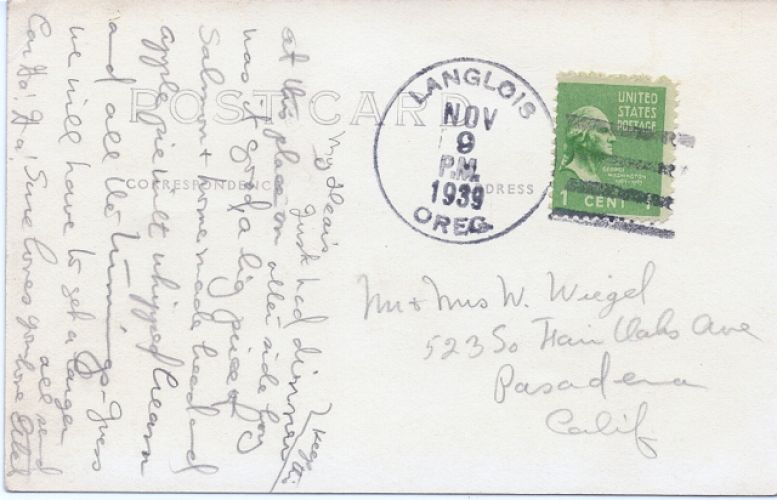 POST CARD
CORRESPONDENCE
ADDRESS
LANGLOIS
NOV
9
P.M.
1939
OREG.
UNITED
STATES
POSTAGE
GEORGE
WASHINGTON
1 CENT
Mr + Mrs W. Wiegel
523 So Fair Oaks Ave
Pasadena
Calif
My Dears
Just had dinner
at this place on other side
was it good, a big piece of
Salmon + home made bread
apple pie with whipped cream
and all the trimmings - Guess
we will have to get a larger
Car Ha! Ha! Sure loves you all
love Ethel
Keep this